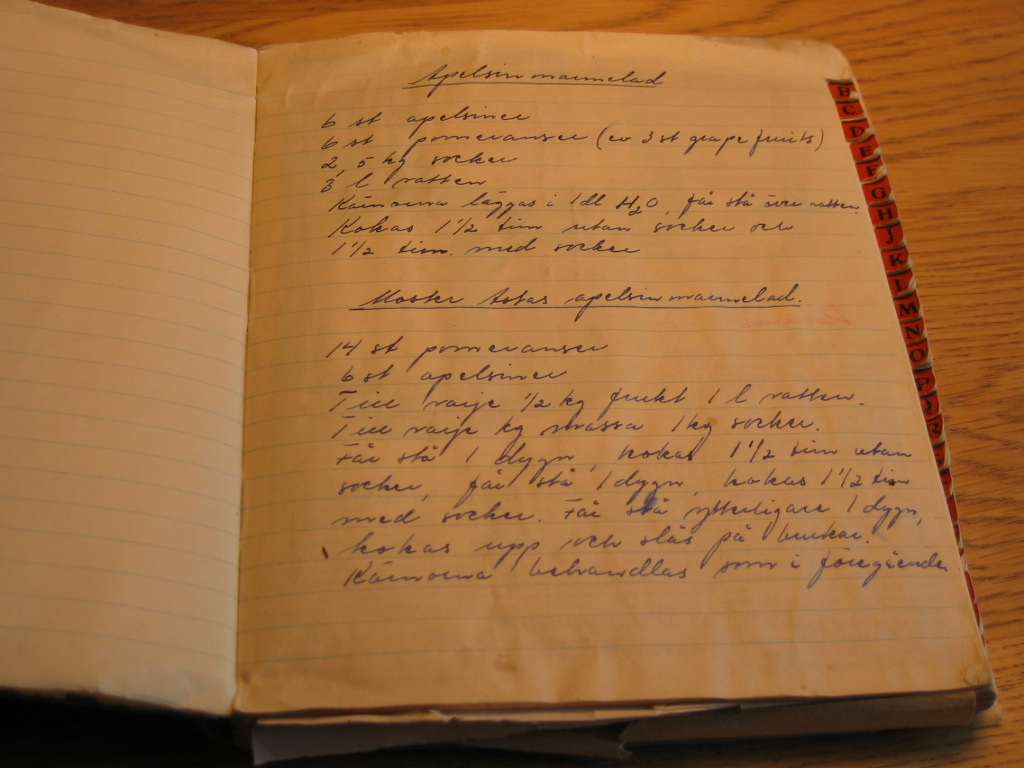 Apelsinmarmelad
6 st apelsiner
6 st pomeranser (ev 3 st grape fruits)
2,5 kg socker
3 l vatten
Kärnorna läggas i 1 dl H2O, får stå över natten.
Kokas 1 1/2 tim utan socker och
1 1/2 tim. med socker
Moster Astas apelsinmarmelad.
14 st pomeranser
6 st apelsiner
Till varje 1/2 kg frukt 1 l vatten.
Till varje kg massa 1 kg socker.
Får stå 1 dygn, kokas 1 1/2 tim utan
socker, får stå 1 dygn, kokas 1 1/2 tim
med socker. Får stå ytterligare 1 dygn,
kokas upp och slås på burkar.
Kärnorna behandlas som i föregående
B
C
D
E
F
G
H
J
K
L
M
N
O
P
R